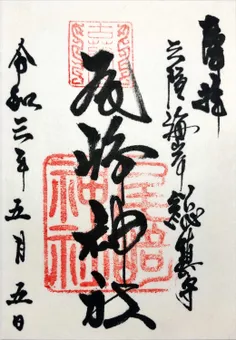 奉拝
三陸海岸総鎮守
尾崎神社
尾崎神社
令和三年五月五日